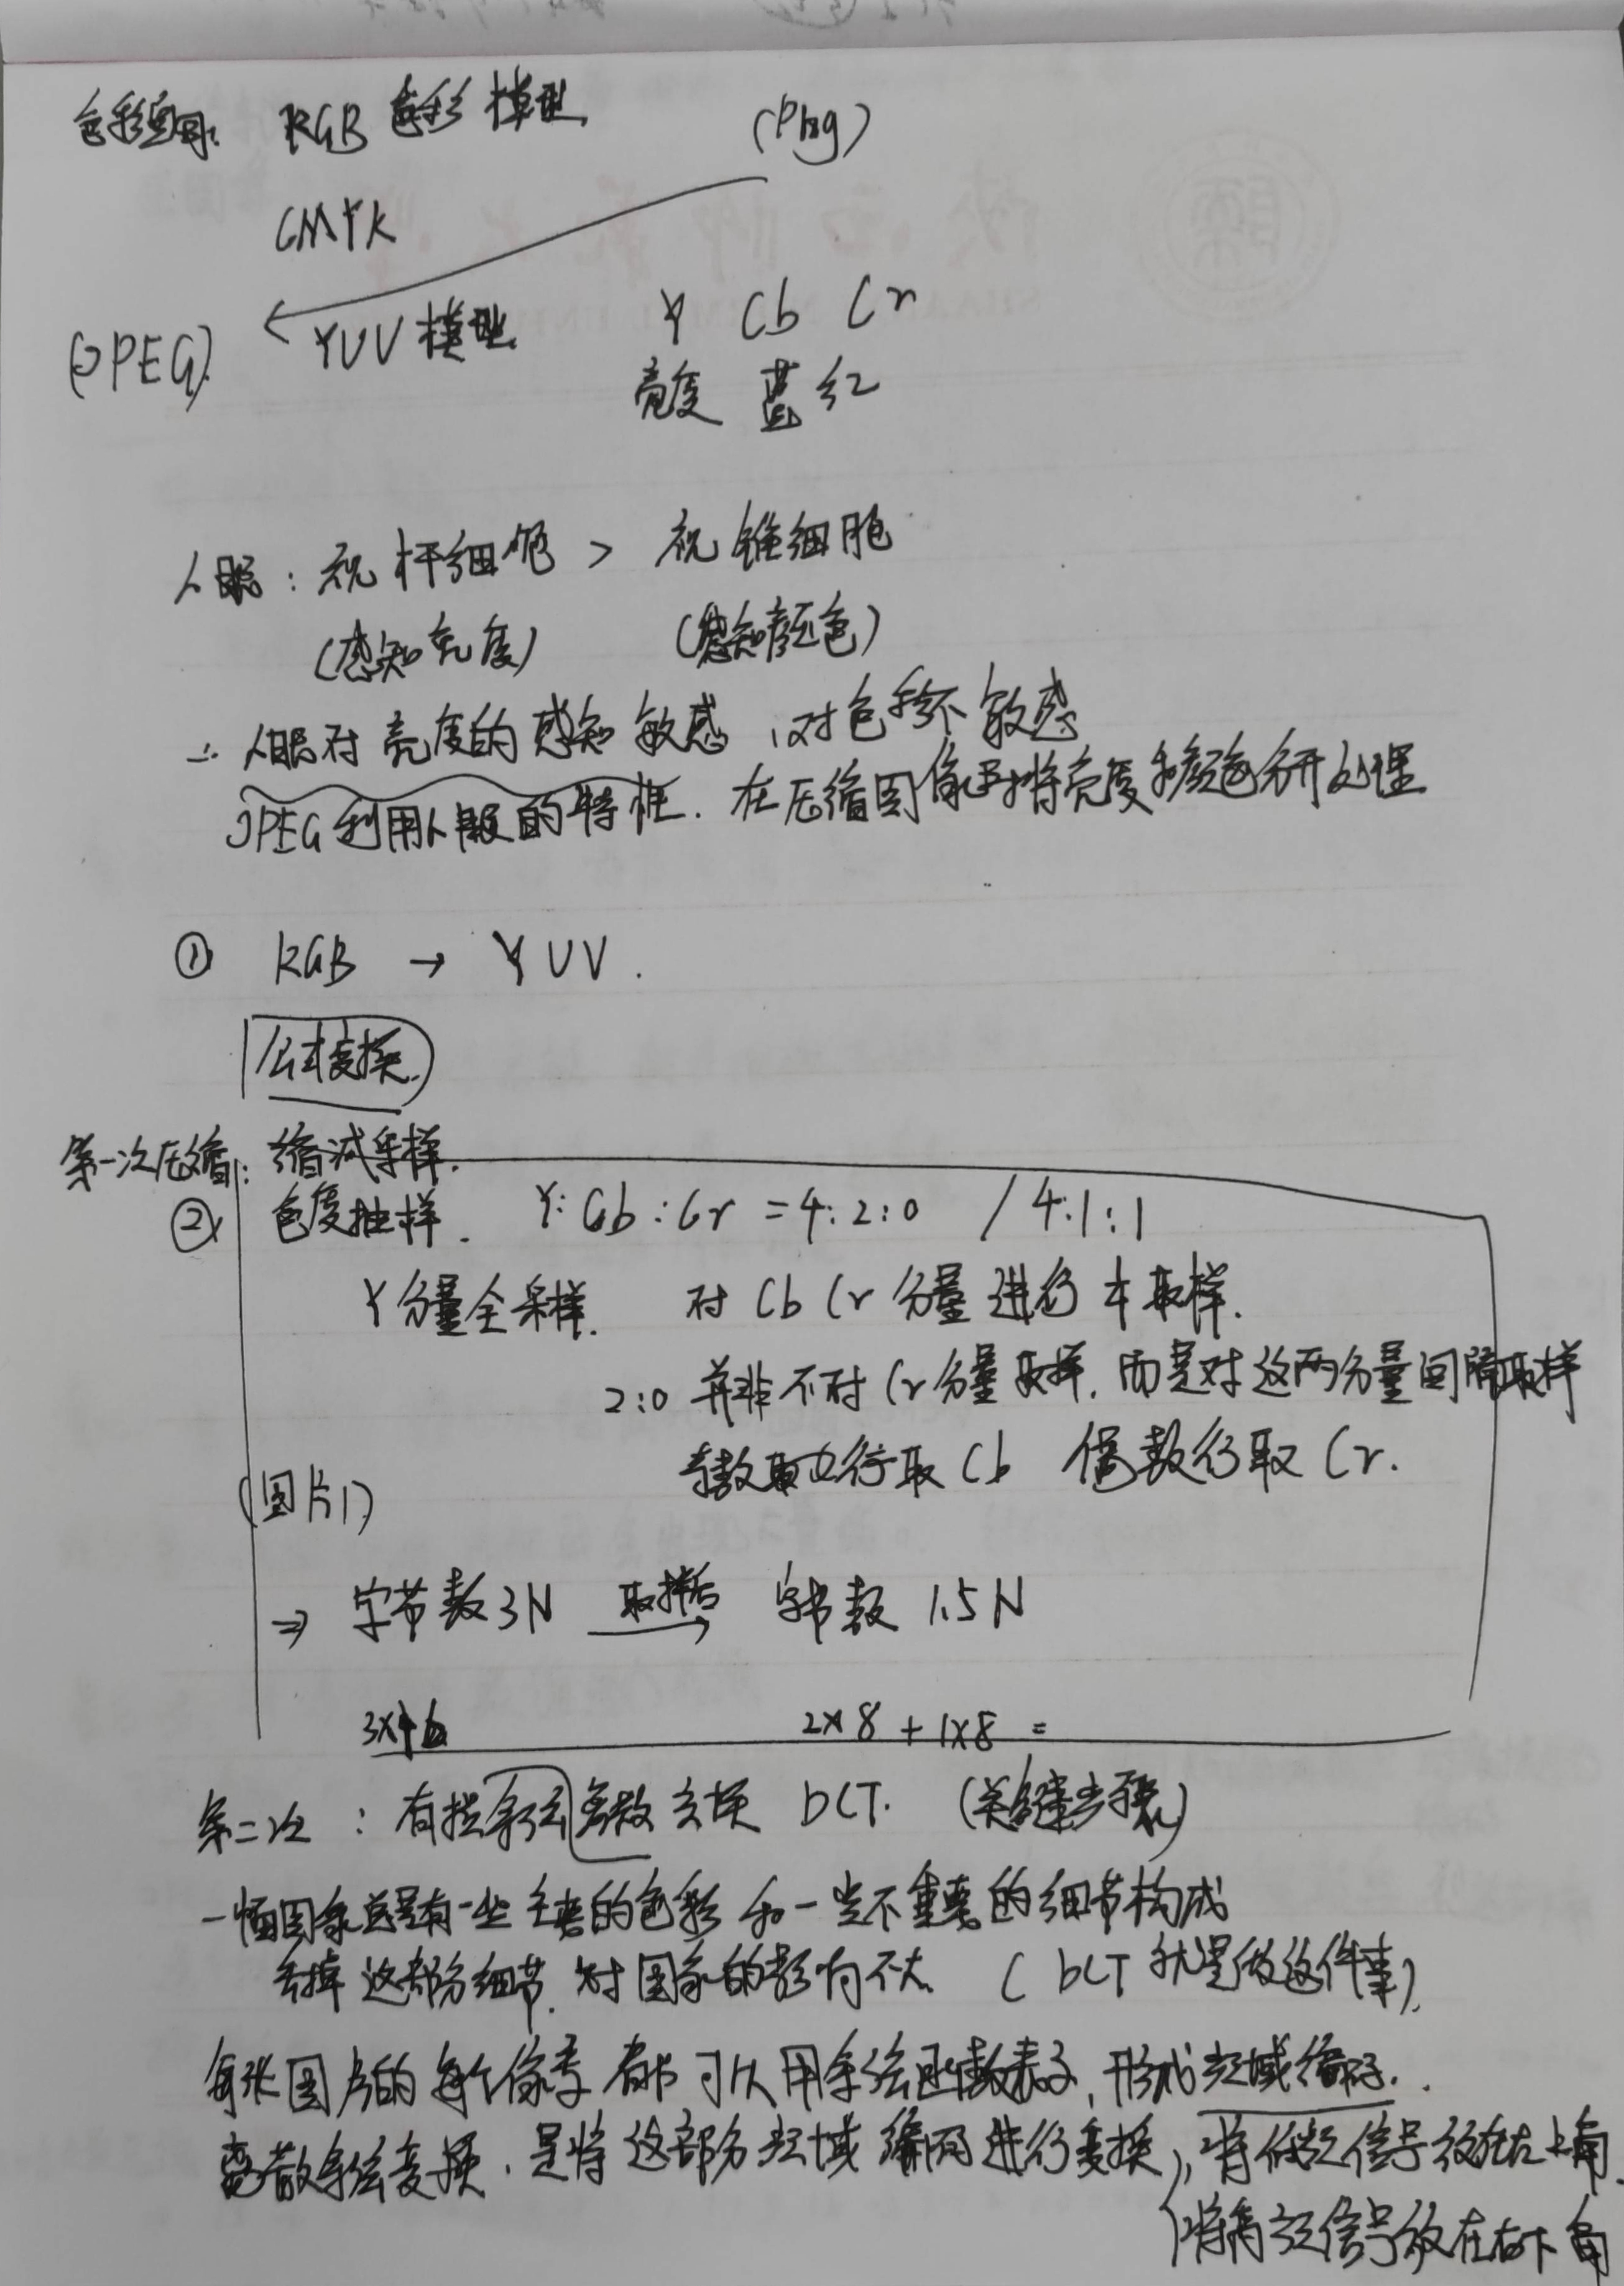 色彩空间: RGB 色彩模型 (Png)
CMYK
(JPEG) YUV模型 Y Cb Cr
亮度 蓝 红
人眼: 视杆细胞 > 视锥细胞
(感知亮度) (感知颜色)
∴ 人眼对亮度的感知敏感, 对色彩不敏感
JPEG利用人眼的特性. 在压缩图像时将亮度和颜色分开处理
① RGB → YUV.
公式变换.
第一次压缩: 缩减采样.
② 色度抽样. Y:Cb:Cr = 4:2:0 / 4:1:1
Y分量全采样. 对Cb Cr分量进行 取样.
2:0 并非不对Cr分量取样, 而是对这两分量间隔取样
奇数 行取Cb 偶数行取Cr.
(图片1)
⇒ 字节数3N 取样后→ 字节数 1.5N
2×8 + 1×8 =
第二次: 有损余弦离散变换 DCT. (关键步骤)
一幅图像总是有一些主要的色彩和一些不重要的细节构成
去掉这部分细节, 对图像的影响不大 (DCT就是做这件事)
每张图片的每个像素都可以用余弦函数表示, 形成
离散余弦变换, 是将这部分 域编码进行变换, 将低频信号放在左上角
将高频信号放在右下角